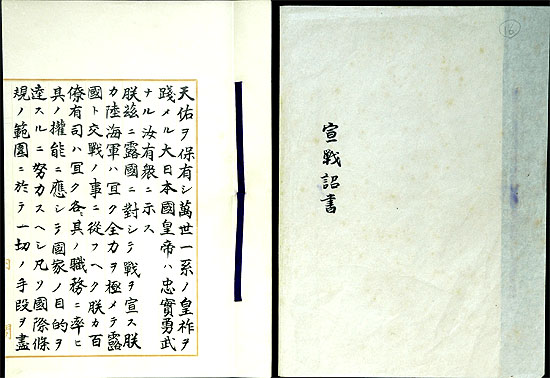 16
宣戰詔書
天佑ヲ保有シ萬世一系ノ皇祚ヲ
踐メル大日本國皇帝ハ忠實勇武
ナル汝有衆ニ示ス
朕茲ニ露國ニ對シテ戰ヲ宣ス朕
カ陸海軍ハ宜ク全力ヲ極メテ露
國ト交戰ノ事ニ從フヘク朕カ百
僚有司ハ宜ク各〻其ノ職務ニ率ヒ
其ノ權能ニ應シテ國家ノ目的ヲ
達スルニ努力スヘシ凡ソ國際條
規ノ範圍ニ於テ一切ノ手段ヲ盡